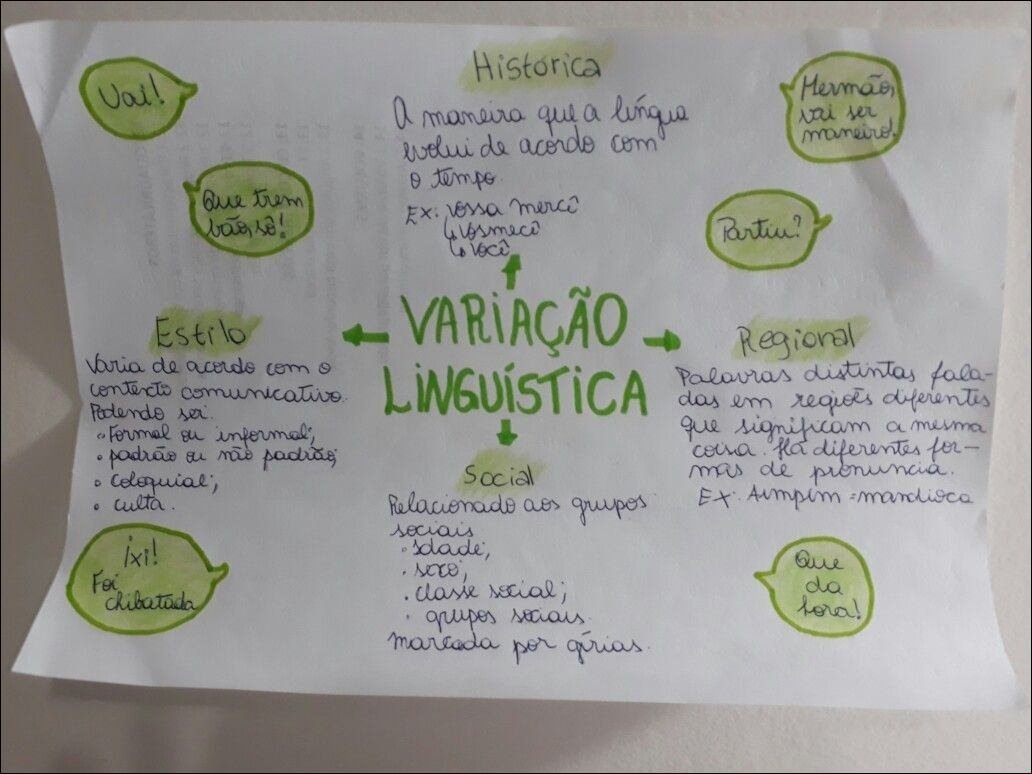 Uai!
Que trem
bão, sô!
Histórica
A maneira que a língua
evolui de acordo com
o tempo.
Ex: vossa mercê
↳ vosmecê
↳ você
Mermão,
vai ser
maneiro!
Partiu?
VARIAÇÃO
LINGUÍSTICA
Estilo
Varia de acordo com o
contexto comunicativo.
Podendo ser:
• Formal ou informal;
• padrão ou não padrão;
• coloquial;
• culta.
Regional
Palavras distintas fala-
das em regiões diferentes
que significam a mesma
coisa. Há diferentes for-
mas de pronuncia.
Ex: Aimpim = mandioca
Social
Relacionado aos grupos
sociais
• Idade;
• sexo;
• classe social;
• grupos sociais.
Marcada por gírias.
Ixi!
Foi
chibatada
Que
da
hora!